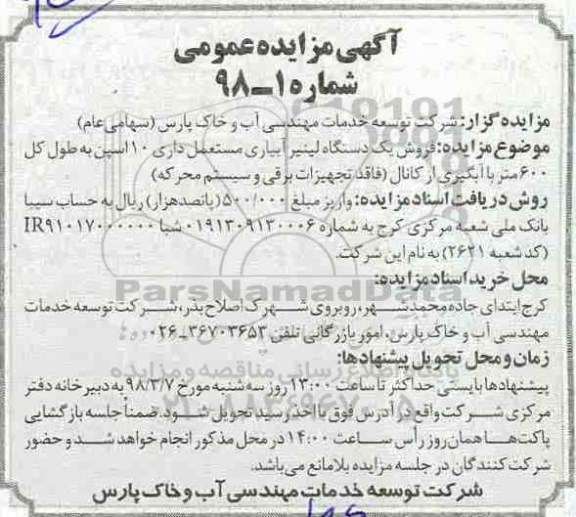 آگهی مزایده عمومی
شماره ۱ـ۹۸
مزایده گزار: شرکت توسعه خدمات مهندسی آب و خاک پارس (سهامی عام)
موضوع مزایده: فروش یک دستگاه لینیر آبیاری مستعمل داری ۱۰ اسپن به طول کل
۶۰۰ متر با آبگیری از کانال (فاقد تجهیزات برقی و سیستم محرکه)
روش دریافت اسناد مزایده: واریز مبلغ ۵۰۰/۰۰۰ (پانصدهزار) ریال به حساب سیبا
بانک ملی شعبه مرکزی کرج به شماره ۰۱۹۱۳۰۹۱۳۰۰۰۶ شبا IR۹۱۰۱۷۰۰۰۰۰۰
(کد شعبه ۲۶۲۱) به نام این شرکت.
محل خرید اسناد مزایده:
کرج ابتدای جاده محمدشهر، روبروی شهرک اصلاح بذر، شرکت توسعه خدمات
مهندسی آب و خاک پارس، امور بازرگانی تلفن ۳۶۷۰۳۶۵۳ـ۰۲۶
زمان و محل تحویل پیشنهادها:
پیشنهادها بایستی حداکثر تا ساعت ۱۳:۰۰ روز سه شنبه مورخ ۹۸/۳/۷ به دبیرخانه دفتر
مرکزی شرکت واقع در آدرس فوق با اخذ رسید تحویل شود. ضمناً جلسه بازگشایی
پاکت‌ها همان روز رأس ساعت ۱۴:۰۰ در محل مذکور انجام خواهد شد و حضور
شرکت کنندگان در جلسه مزایده بلامانع می‌باشد.
شرکت توسعه خدمات مهندسی آب و خاک پارس
ParsNamadData
پایگاه اطلاع رسانی مناقصه و مزایده